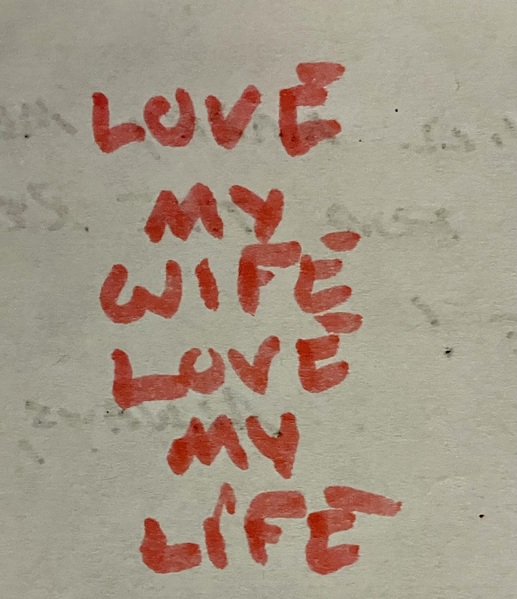 LOVE
MY
WIFE
LOVE
MY
LIFE